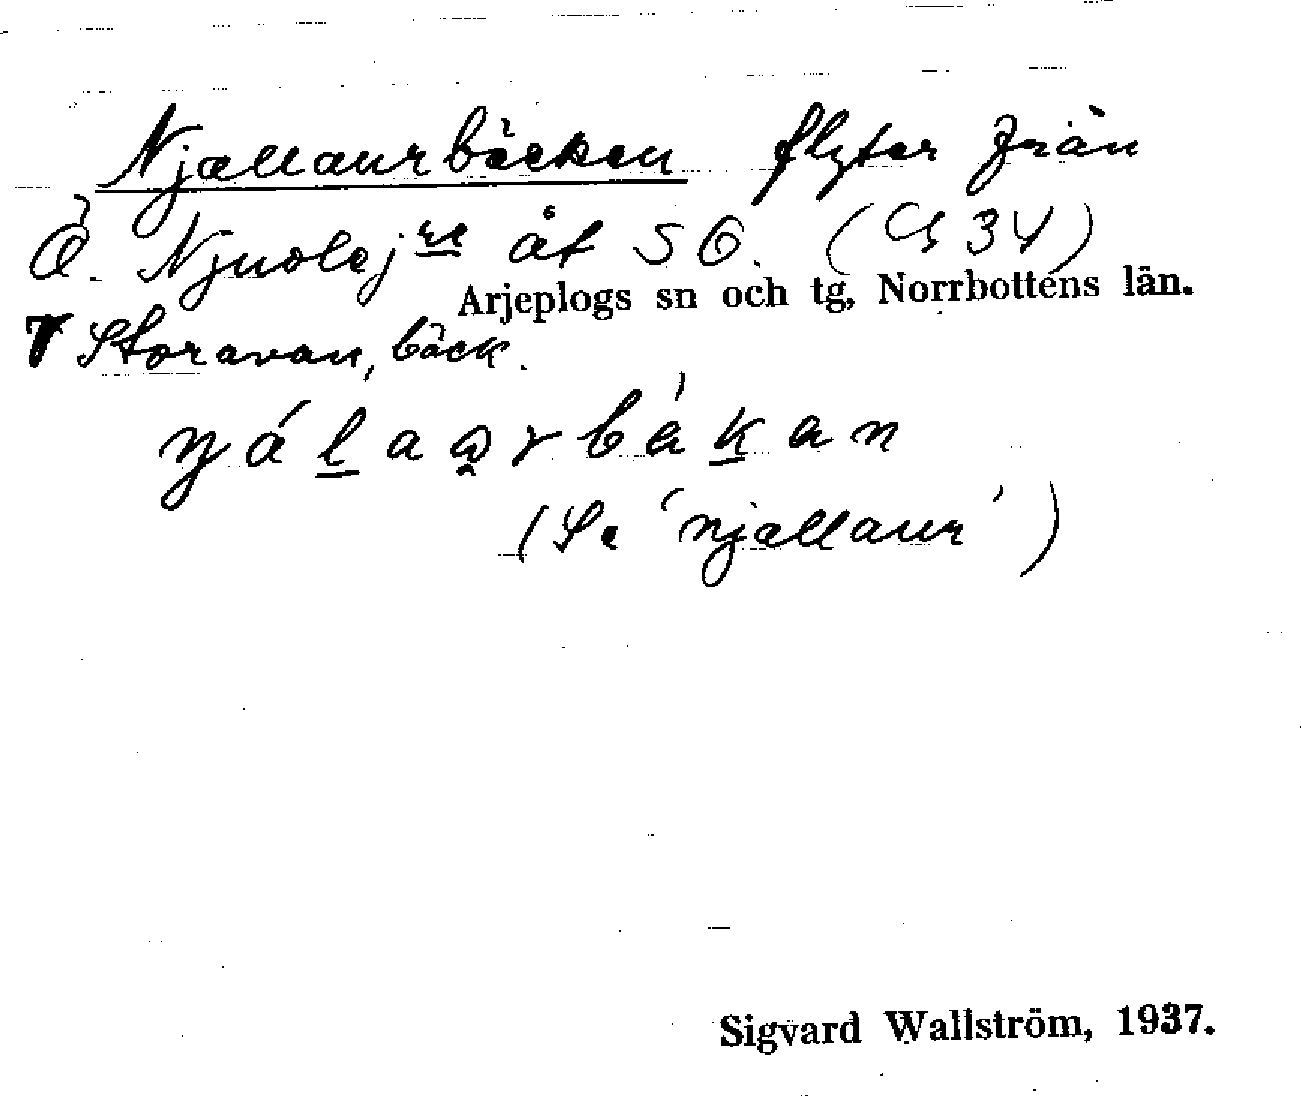 Njallaurbäcken flyter från
Ö. Njuolejre åt SO. (G 34)
Arjeplogs sn och tg, Norrbottens län.
T Storavan, bäck.
(Se 'njallaur')
Sigvard Wallström, 1937.